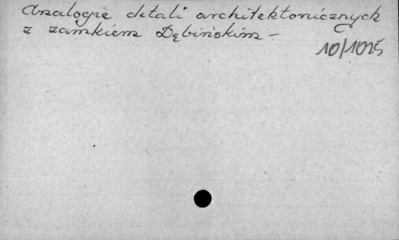 Analogie detali architektonicznych
z zamkiem Dębińskim –
10/1025